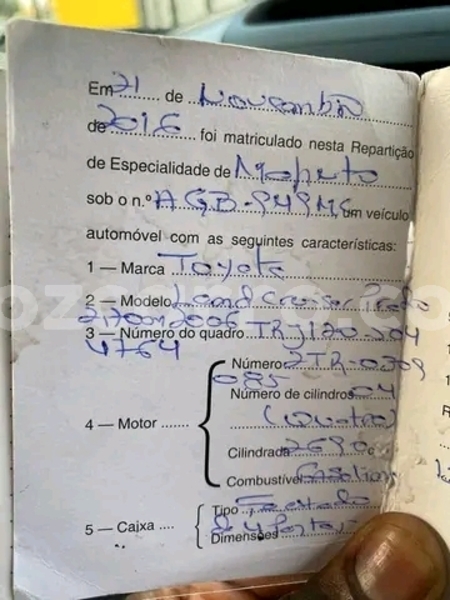 Em 21 de Novembro
de 2016 foi matriculado nesta Repartição
de Especialidade de Maputo
sob o n.º AGB-949MC um veículo
automóvel com as seguintes características:
1 — Marca Toyota
2 — Modelo Land Cruiser Prado
2700m 2006
3 — Número do quadro TRJ120-504
4764
Número 2TR-0309
085
Número de cilindros 04
4 — Motor (Quatro)
Cilindrada 2690c
Combustível Gasolina
5 — Caixa Tipo Fechado
de 4 Portas
Dimensões